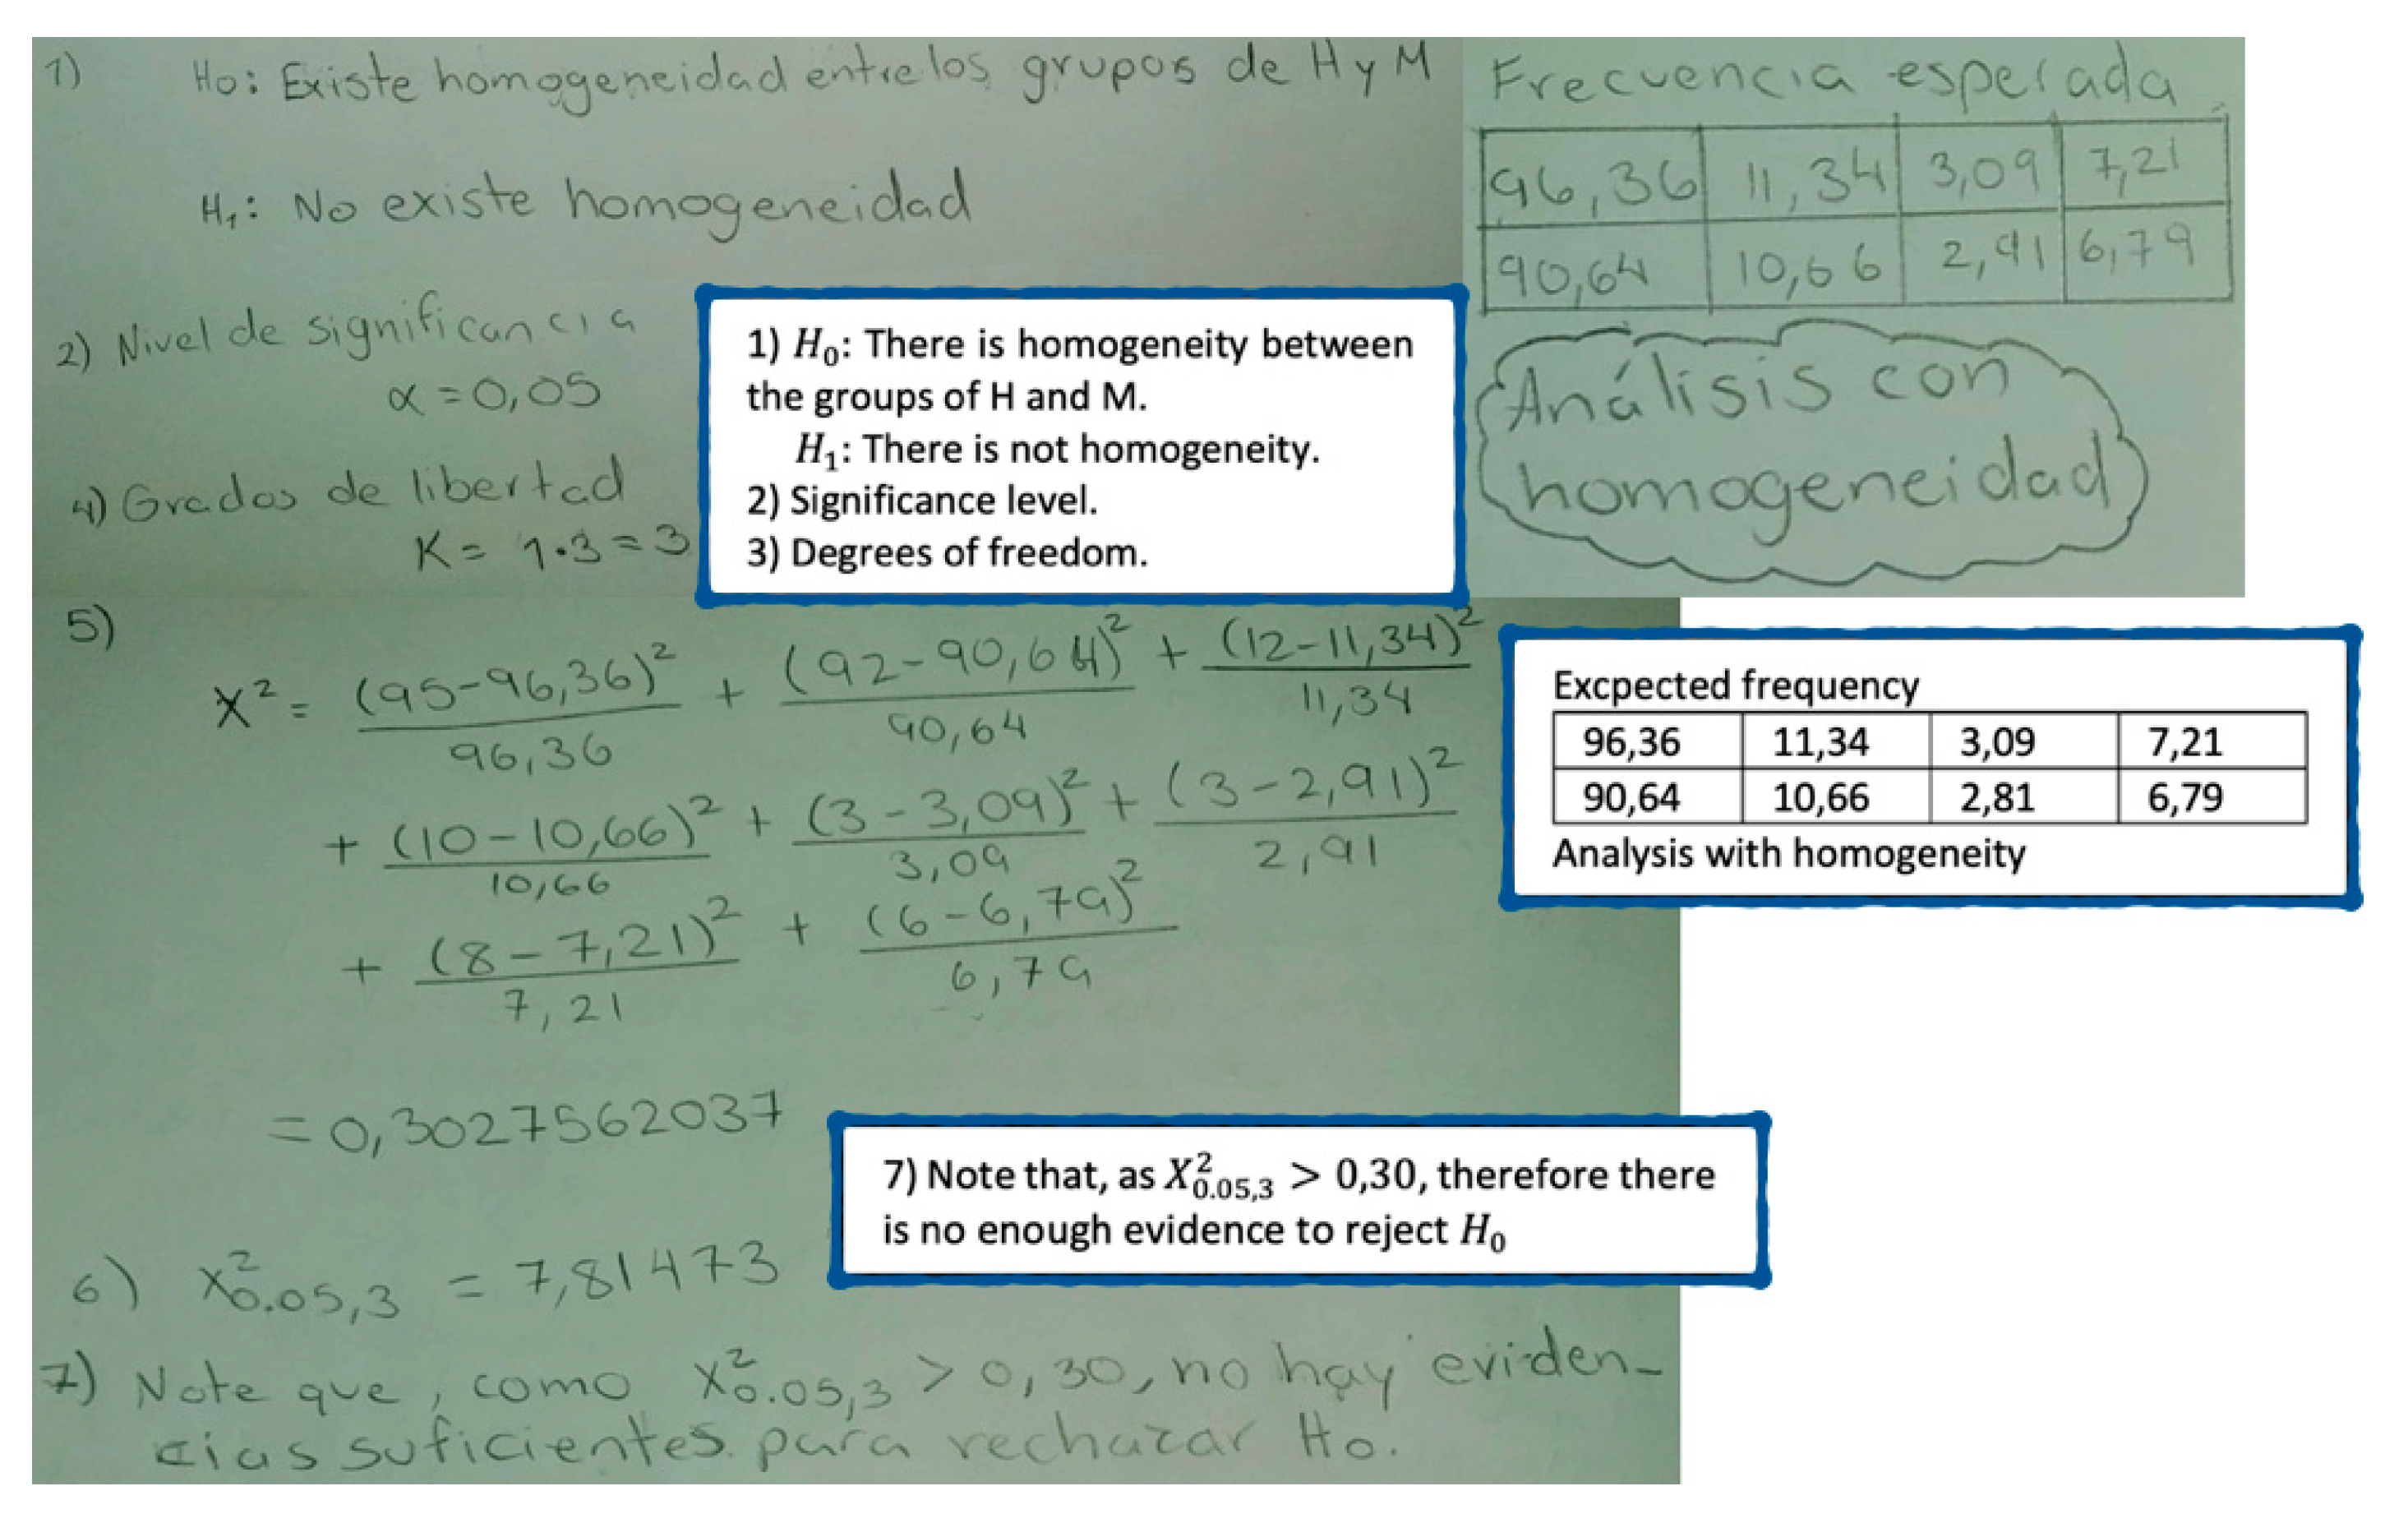 1) Ho: Existe homogeneidad entre los grupos de H y M
H₁: No existe homogeneidad
2) Nivel de significancia
α = 0,05
4) Grados de libertad
K = 1·3 = 3
Frecuencia esperada
96,36 11,34 3,09 7,21
90,64 10,66 2,91 6,79
Análisis con
homogeneidad
1) H₀: There is homogeneity between
the groups of H and M.
H₁: There is not homogeneity.
2) Significance level.
3) Degrees of freedom.
5)
X² = (95-96,36)²/96,36 + (92-90,64)²/90,64 + (12-11,34)²/11,34
+ (10-10,66)²/10,66 + (3-3,09)²/3,09 + (3-2,91)²/2,91
+ (8-7,21)²/7,21 + (6-6,79)²/6,79
= 0,3027562037
Excpected frequency
96,36 11,34 3,09 7,21
90,64 10,66 2,81 6,79
Analysis with homogeneity
7) Note that, as X²0.05,3 > 0,30, therefore there
is no enough evidence to reject H₀
6) X²0.05,3 = 7,81473
7) Note que, como X²0.05,3 > 0,30, no hay eviden-
cias suficientes para rechazar Ho.